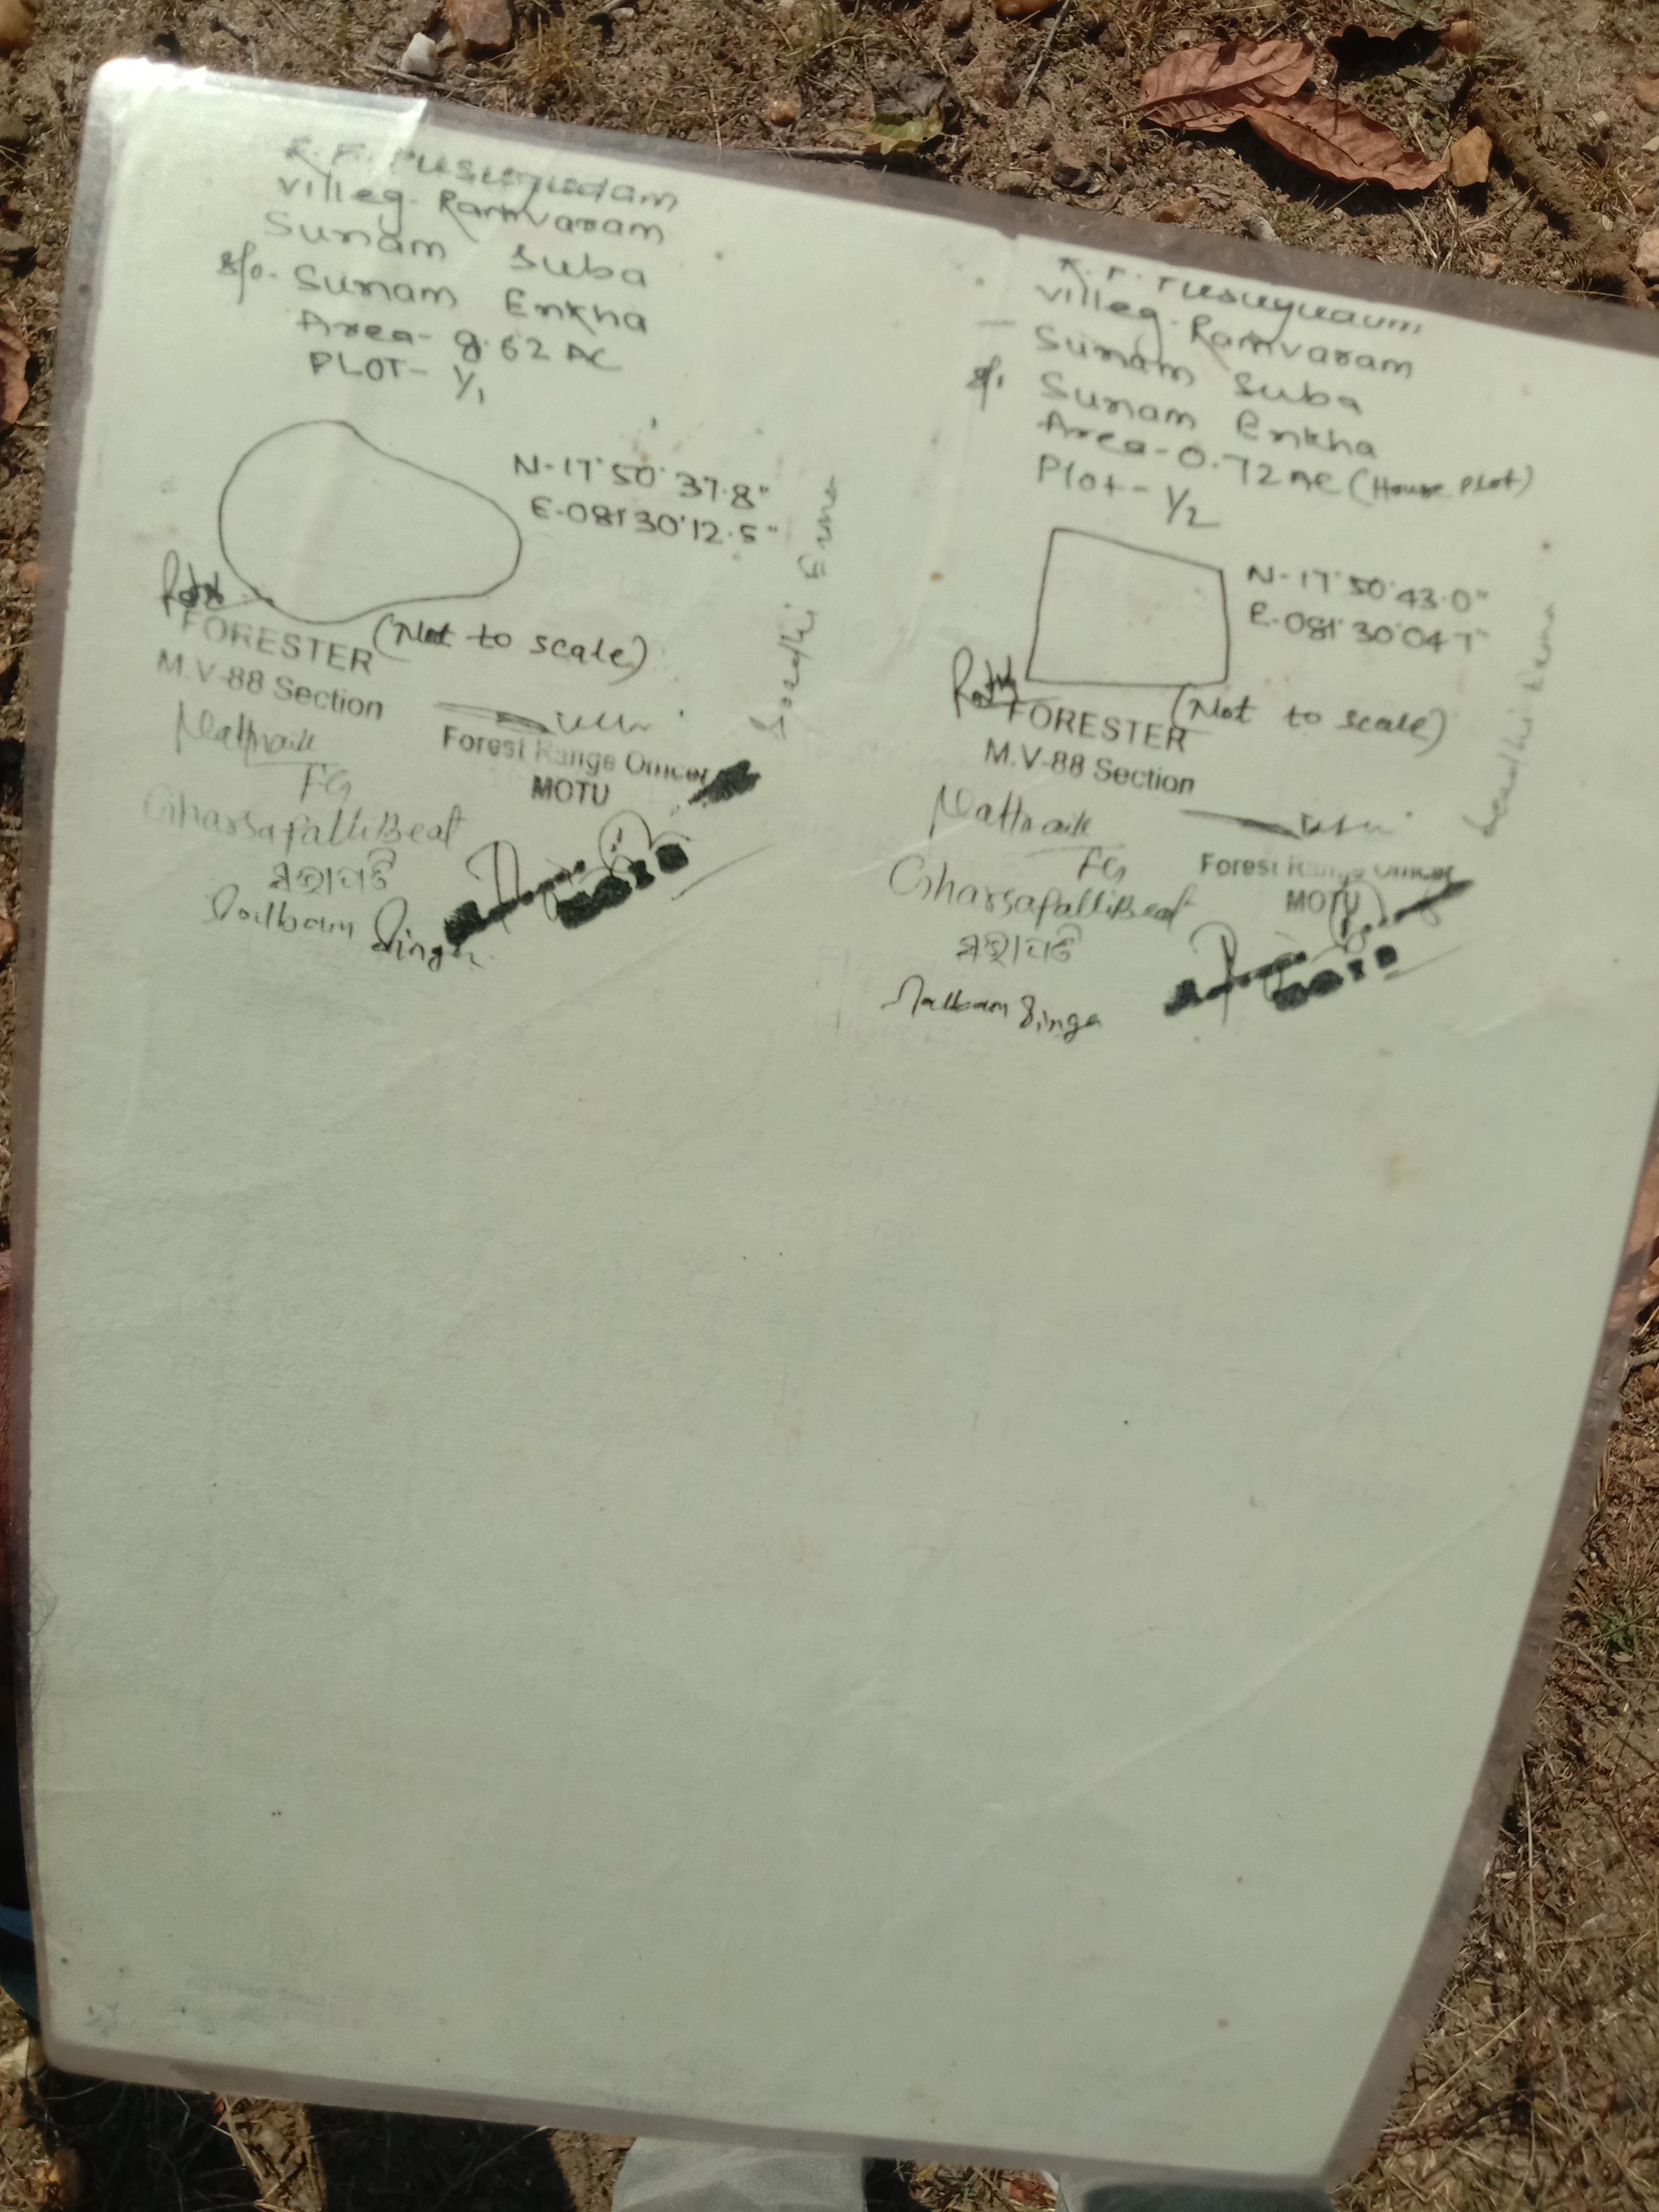 R.F. Pusugudam
villeg- Ramvaram
Sunam Suba
S/o- Sunam Enkha
Area- 9.62 AC
PLOT- 1/1
N-17°50'37.8"
E-081°30'12.5"
(Not to scale)
FORESTER
M.V-88 Section
Forest Range Officer
MOTU
FG
GharsapalliBeat
ସଭାପତି
Singa
R.F. Pusugudam
villeg- Ramvaram
Sunam Suba
S/o Sunam Enkha
Area-0.72 AC (House Plot)
Plot- 1/2
N-17°50'43.0"
E-081°30'04.7"
(Not to scale)
FORESTER
M.V-88 Section
Forest Range Officer
MOTU
FG
GharsapalliBeat
ସଭାପତି
Singa